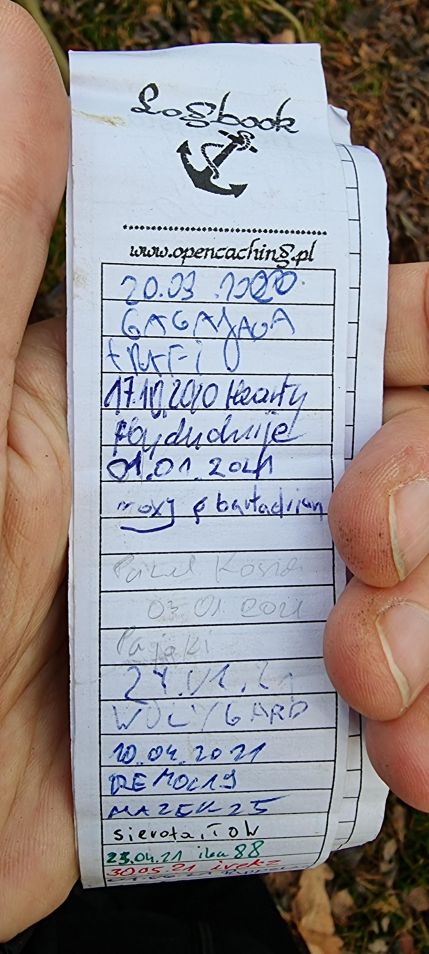 Logbook
www.opencaching.pl
20.03.2020
GAGAJAGA
17.10.2020 Hearty
01.01.2021
moxy & bartadrian
Paweł
03.01.2021
Pająki
24.01.21
WOLYGARD
10.04.2021
MAZEK25
sierota, TOW
23.04.21 ika 88
30.05.21